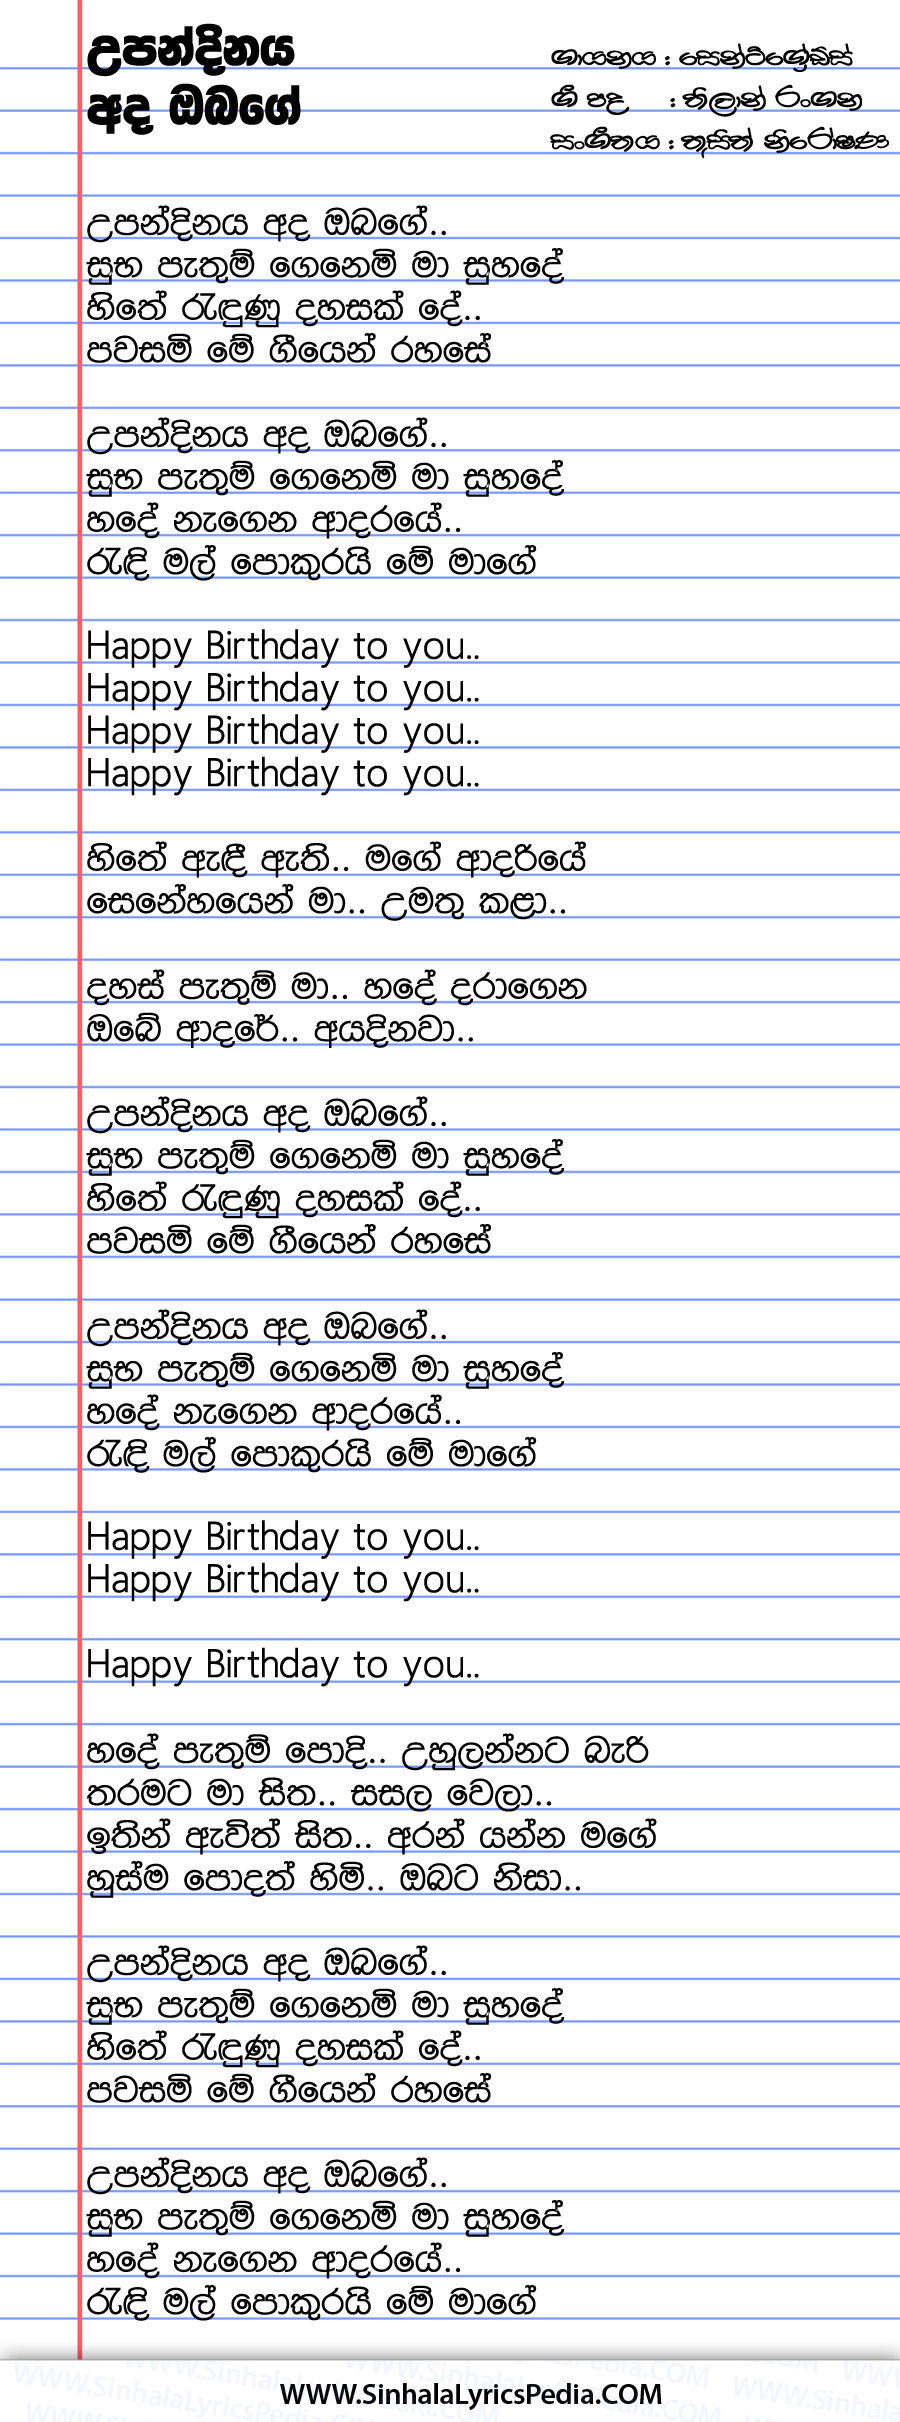 උපන්දිනය
අද ඔබගේ
ගායනය : සෙන්ට්ග්‍රේඩ්ස්
ගී පද : තිලාන් රංගන
සංගීතය : තුසිත් නිරෝෂණ
උපන්දිනය අද ඔබගේ..
සුභ පැතුම් ගෙනෙමි මා සුහදේ
හිතේ රැඳුණු දහසක් දේ..
පවසමි මේ ගීයෙන් රහසේ
උපන්දිනය අද ඔබගේ..
සුභ පැතුම් ගෙනෙමි මා සුහදේ
හදේ නැගෙන ආදරයේ..
රැඳි මල් පොකුරයි මේ මාගේ
Happy Birthday to you..
Happy Birthday to you..
Happy Birthday to you..
Happy Birthday to you..
හිතේ ඇඳී ඇති.. මගේ ආදරියේ
සෙනේහයෙන් මා.. උමතු කළා..
දහස් පැතුම් මා.. හදේ දරාගෙන
ඔබේ ආදරේ.. අයදිනවා..
උපන්දිනය අද ඔබගේ..
සුභ පැතුම් ගෙනෙමි මා සුහදේ
හිතේ රැඳුණු දහසක් දේ..
පවසමි මේ ගීයෙන් රහසේ
උපන්දිනය අද ඔබගේ..
සුභ පැතුම් ගෙනෙමි මා සුහදේ
හදේ නැගෙන ආදරයේ..
රැඳි මල් පොකුරයි මේ මාගේ
Happy Birthday to you..
Happy Birthday to you..
Happy Birthday to you..
හදේ පැතුම් පොදි.. උහුලන්නට බැරි
තරමට මා සිත.. සසල වෙලා..
ඉතින් ඇවිත් සිත.. අරන් යන්න මගේ
හුස්ම පොදත් හිමි.. ඔබට නිසා..
උපන්දිනය අද ඔබගේ..
සුභ පැතුම් ගෙනෙමි මා සුහදේ
හිතේ රැඳුණු දහසක් දේ..
පවසමි මේ ගීයෙන් රහසේ
උපන්දිනය අද ඔබගේ..
සුභ පැතුම් ගෙනෙමි මා සුහදේ
හදේ නැගෙන ආදරයේ..
රැඳි මල් පොකුරයි මේ මාගේ
WWW.SinhalaLyricsPedia.COM